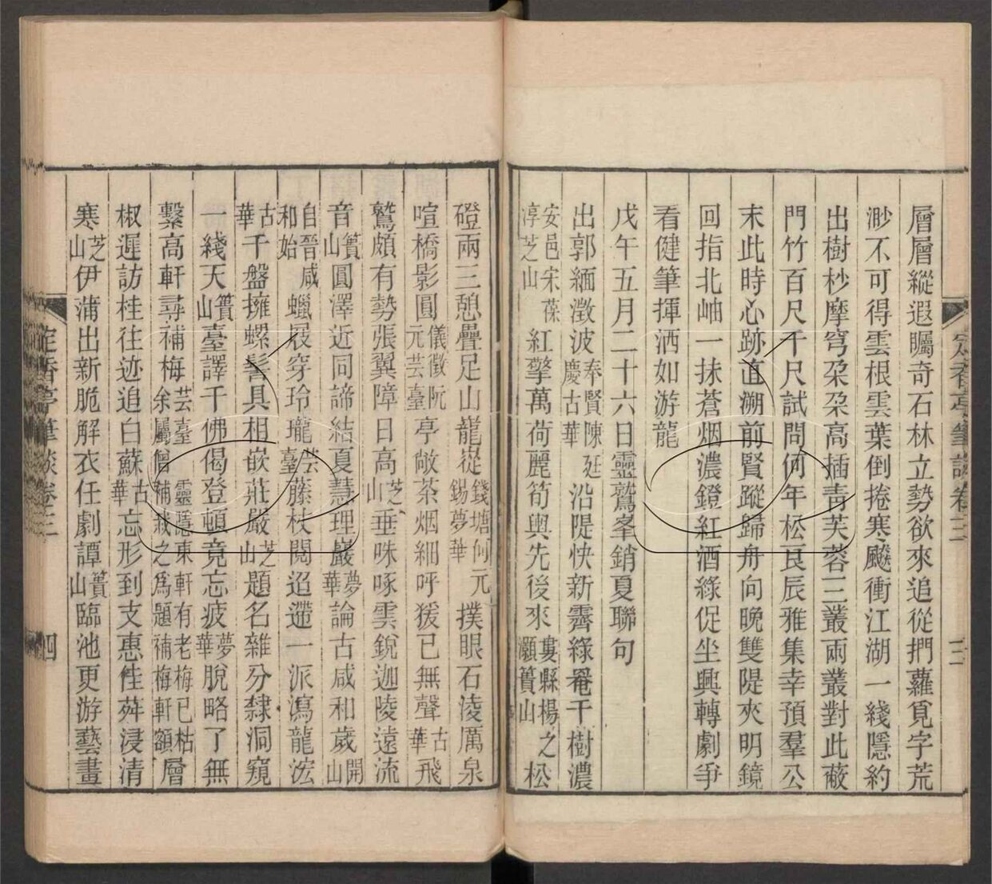 層層縱遐矚奇石林立勢欲來追從捫蘿覓字荒
渺不可得雲根雲葉倒捲寒飈衝江湖一綫隱約
出樹杪摩穹朶朶高插青芙蓉三叢兩叢對此蔽
門竹百尺千尺試問何年松良辰雅集幸預羣公
末此時心跡直溯前賢蹤歸舟向晚雙隄夾明鏡
回指北岫一抹蒼烟濃鐙紅酒綠促坐興轉劇爭
看健筆揮洒如游龍
戊午五月二十六日靈鷲峯銷夏聯句
出郭緬澂波奉賢陳廷慶古華沿隄快新霽綠罨千樹濃
安邑宋葆淳芝山紅擎萬荷麗筍輿先後來婁縣楊之灝簣山松
磴兩三憩疊足山龍嵸錢塘何元錫夢華撲眼石淩厲泉
喧橋影圓儀徵阮元芸臺亭敞茶烟細呼猨已無聲古華飛
鷲頗有勢張翼障日高芝山垂咮啄雲銳迦陵遠流
音簣山圓澤近同諦結夏慧理巖夢華論古咸和歲開山
自晉咸和始蠟屐穿玲瓏芸臺藤杖閱迢遰一派瀉龍泓
古華千盤擁螺髻具相嵌莊嚴芝山題名雜分隸洞窺
一綫天簣山臺譯千佛偈登頓竟忘疲夢華脫略了無
繫高軒尋補梅芸臺余屬僧補栽之爲題補梅軒額靈隱東軒有老梅已枯層
椒遲訪桂往迹追白蘇古華忘形到支惠性薜浸清
寒芝山伊蒲出新脆解衣任劇譚簣山臨池更游藝畫
定香亭筆談卷三
四